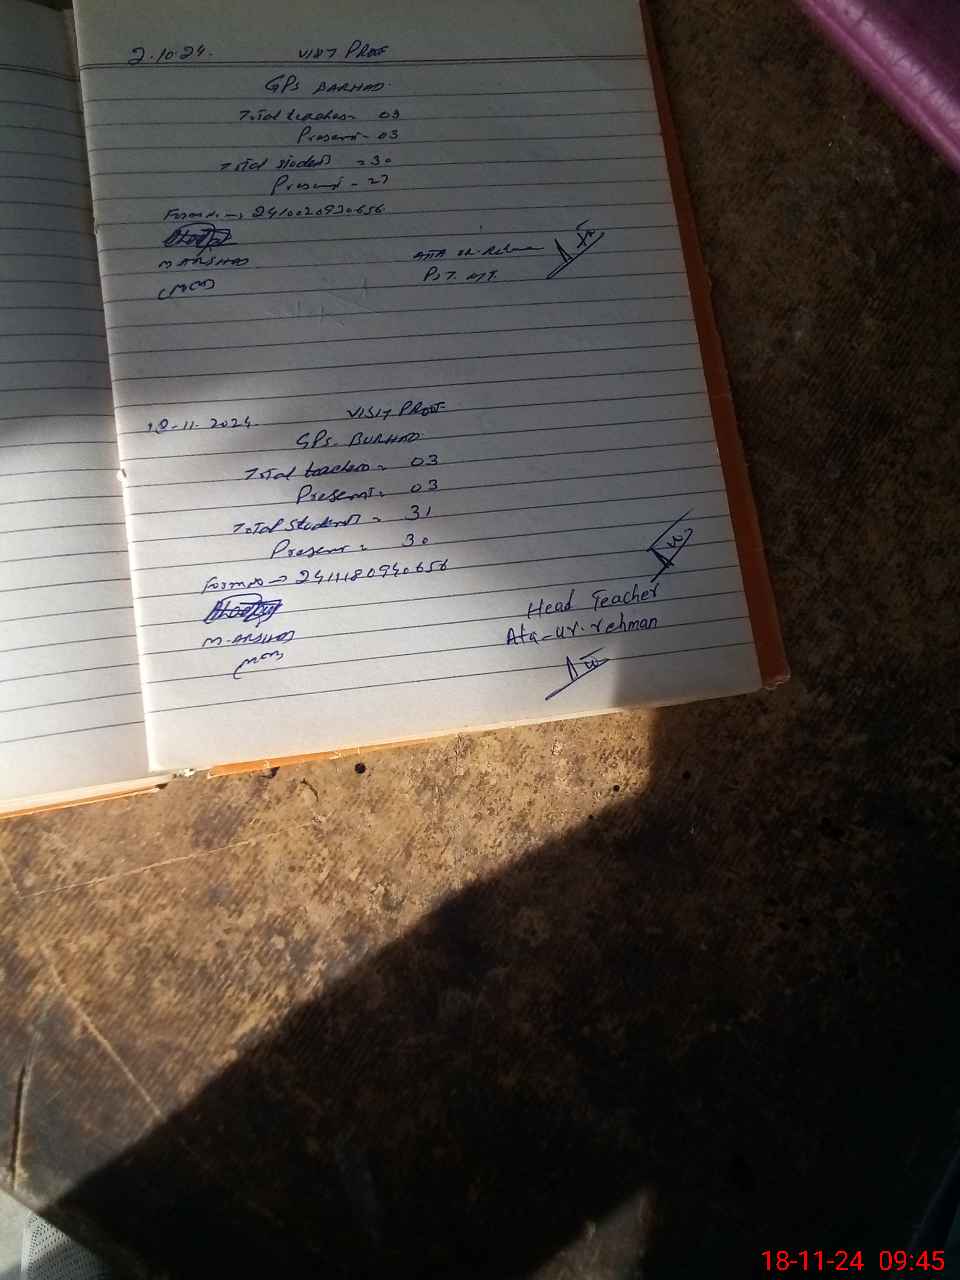 2.10.24. VISIT PROOF
GPS BARHAD.
Total teachers- 03
Present- 03
Total students =30
Present - 27
Form no. → 2410020930656
M ARSHAD
Ata ur. Rehman
(MCM)
PST.
18-11-2024. VISIT PROOF
GPS- BURHAD
Total teachers = 03
Present = 03
Total students = 31
Present = 30
Form no → 2411180940656
M-ARSHAD
Head Teacher
Ata-ur-rehman
18-11-24 09:45